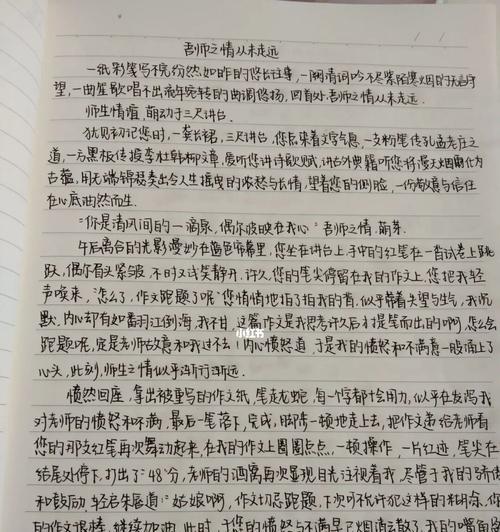 吾师之情从未走远
一纸彩笺写不完纷然如昨的悠长往事，一阕清词吟不尽紫陌爆烟的天高守
望，一曲笙歌唱不出流年宛转的曲调悠扬，回首处吾师之情从未走远。
师生情瘟，萌动于三尺讲台。
犹见初记您时，一袭长裙，三尺讲台，您总夹着文字气息，一支粉笔传孔孟老庄之
道，一方黑板传授李杜韩柳文章，爱听您讲诗歌赋，讲台外典籍听您将漫天烟雨化为
古蕴，用无端锦瑟奏出令人生摇曳的浓愁与长情，望着您的侧脸，一份敬意与信任
在心底油然而生。
"你是清风间的一滴泉，偶尔波映在我心"吾师之情，萌芽。
午后离合的光影漫妙在蓝色帘幕里，您坐在讲台上，手中的红笔在一沓试卷上跳
跃，偶尔眉头紧皱，不时又试笑静开，许久，您的笔尖停留在我的作文上，您把我轻
声唤来，"怎么了，作文跑题了呢"您悄悄地拍了拍我的肩，似乎带着失望与生气，我沉
默，内心却有如翻江倒海，我不甘，这篇作文是我思考许久后才提笔而出的啊，怎么会
跑题呢，定是老师故意和我过不去，内心愤怒道，于是我的愤怒和不满意一股涌上了
心头，此刻，师生之情似乎渐行渐远。
愤然回座，拿出被重写的作文纸，笔走龙蛇，每一个字都十分用力，似乎在发泻我
对老师的愤怒和不满，最后一笔落下，完成，脚步一顿地走上去，把作文递给老师看
您的那支红笔再次舞动起来，在我的作文上圈圈点点，一顿操作，一片红迹，笔尖在
结尾处停下，打出了"48"分，老师的洒离再次显现，目光注视着我，尽管于我的骄傲
和鼓励，轻启朱唇道："姑娘啊，作文切忌跑题，下次可不允许犯这样的粗心，你
的作文很棒，继续加油，此时，于您的愤怒与不满早已烟消云散了，我的嘴角扬
小红书